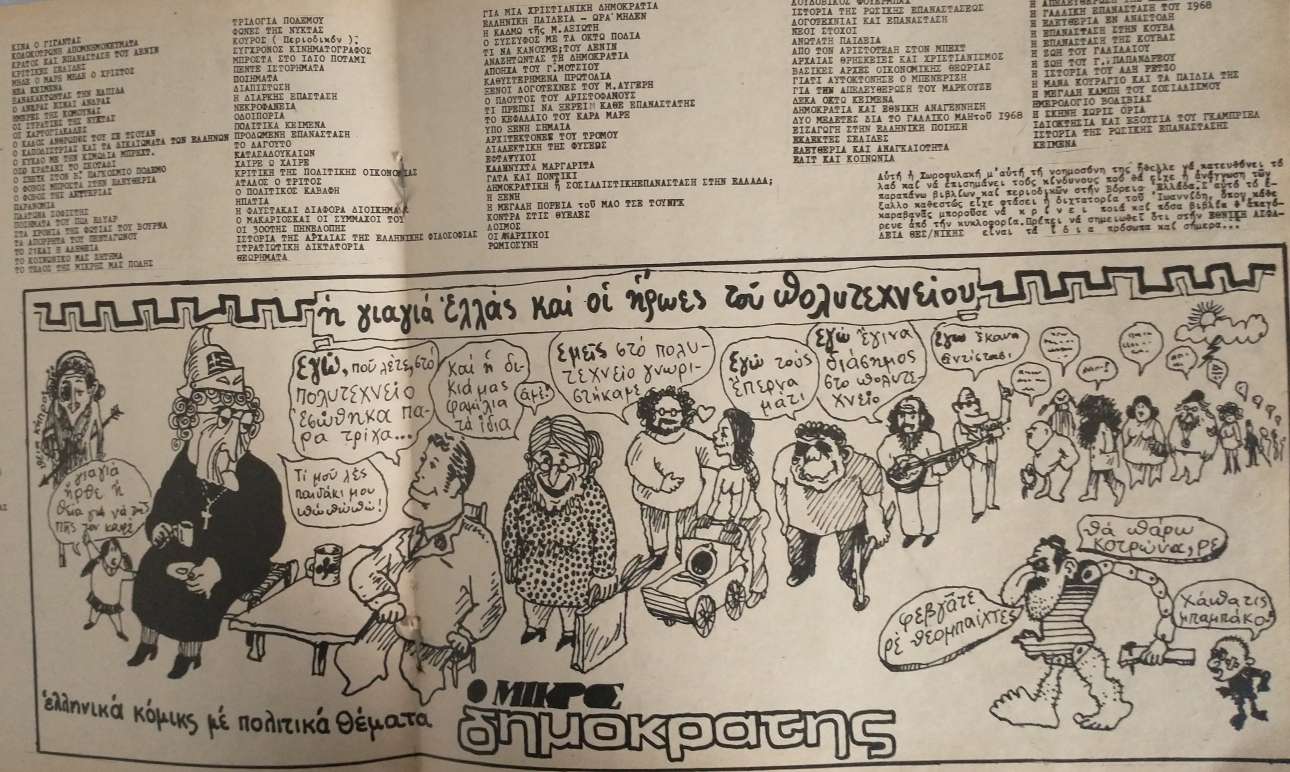 ΚΙΝΑ Ο ΓΙΓΑΝΤΑΣ
ΚΟΛΟΚΟΤΡΩΝΗ ΑΠΟΜΝΗΜΟΝΕΥΜΑΤΑ
ΚΡΑΤΟΣ ΚΑΙ ΕΠΑΝΑΣΤΑΣΗ ΤΟΥ ΛΕΝΙΝ
ΚΡΙΤΙΚΗΣ ΣΕΛΙΔΕΣ
ΝΕΑ ΚΕΙΜΕΝΑ
ΗΜΕΡΕΣ ΤΗΣ ΚΟΜΟΥΝΑΣ
ΟΙ ΧΑΡΤΟΓΙΑΚΑΔΕΣ
Ο ΚΑΛΟΣ ΑΝΘΡΩΠΟΣ ΤΟΥ ΣΕ ΤΣΟΥΑΝ
Ο ΚΑΠΟΔΙΣΤΡΙΑΣ ΚΑΙ ΤΑ ΔΙΚΑΙΩΜΑΤΑ ΤΩΝ ΕΛΛΗΝΩΝ
Ο ΚΥΚΛΟ ΜΕ ΤΗΝ ΚΙΜΩΛΙΑ ΜΠΡΕΧΤ.
ΟΣΟ ΚΡΑΤΑΕΙ ΤΟ ΣΚΟΤΑΔΙ
Ο ΣΒΕΥΚ ΣΤΟΝ Β' ΠΑΓΚΟΣΜΙΟ ΠΟΛΕΜΟ
Ο ΦΟΒΟΣ ΜΠΡΟΣΤΑ ΣΤΗΝ ΕΛΕΥΘΕΡΙΑ
ΠΑΡΑΝΟΜΙΑ
ΠΛΑΤΩΝΑ ΣΟΦΙΣΤΗΣ
ΠΟΙΗΜΑΤΑ ΤΟΥ ΠΩΛ ΕΛΥΑΡ
ΣΤΑ ΧΡΟΝΙΑ ΤΗΣ ΦΩΤΙΑΣ ΤΟΥ ΒΟΥΡΝΑ
ΤΑ ΑΠΟΡΡΗΤΑ ΤΟΥ ΠΕΝΤΑΓΩΝΟΥ
ΤΟ ΚΟΙΝΩΝΙΚΟ ΜΑΣ ΖΗΤΗΜΑ
ΤΟ ΤΕΛΟΣ ΤΗΣ ΜΙΚΡΗΣ ΜΑΣ ΠΟΛΗΣ
ΤΡΙΛΟΓΙΑ ΠΟΛΕΜΟΥ
ΦΩΝΕΣ ΤΗΣ ΝΥΚΤΑΣ
ΚΟΥΡΟΣ ( Περιοδικόν );
ΣΥΓΧΡΟΝΟΣ ΚΙΝΗΜΑΤΟΓΡΑΦΟΣ
ΜΠΡΟΣΤΑ ΣΤΟ ΙΔΙΟ ΠΟΤΑΜΙ
ΠΕΝΤΕ ΙΣΤΟΡΗΜΑΤΑ
ΠΟΙΗΜΑΤΑ
ΔΙΑΠΙΣΤΩΣΗ
Η ΔΙΑΡΚΗΣ ΕΠΑΣΤΑΣΗ
ΝΕΚΡΟΦΑΝΕΙΑ
ΟΔΟΙΠΟΡΙΑ
ΠΟΛΙΤΙΚΑ ΚΕΙΜΕΝΑ
ΠΡΟΔΩΜΕΝΗ ΕΠΑΝΑΣΤΑΣΗ
ΤΟ ΛΑΓΟΥΤΟ
ΚΑΤΑΣΑΔΟΥΚΑΙΩΝ
ΧΑΙΡΕ Ω ΧΑΙΡΕ
ΚΡΙΤΙΚΗ ΤΗΣ ΠΟΛΙΤΙΚΗΣ ΟΙΚΟΝΟΜΙΑΣ
ΑΤΑΛΟΣ Ο ΤΡΙΤΟΣ
Ο ΠΟΛΙΤΙΚΟΣ ΚΑΒΑΦΗ
ΗΠΑΤΙΑ
Η ΦΑΥΣΤΑΚΑΙ ΔΙΑΦΟΡΑ ΔΙΟΙΚΗΜΑ
Ο ΜΑΚΑΡΙΟΣΚΑΙ ΟΙ ΣΥΜΜΑΧΟΙ ΤΟΥ
ΟΙ 300ΤΗΣ ΠΗΝΕΛΟΠΗΣ
ΙΣΤΟΡΙΑ ΤΗΣ ΑΡΧΑΙΑΣ ΤΗΣ ΕΛΛΗΝΙΚΗΣ ΦΙΛΟΣΟΦΙΑΣ
ΣΤΡΑΤΙΩΤΙΚΗ ΔΙΚΤΑΤΟΡΙΑ
ΘΕΩΡΗΜΑΤΑ
ΓΙΑ ΜΙΑ ΧΡΙΣΤΙΑΝΙΚΗ ΔΗΜΟΚΡΑΤΙΑ
ΕΛΛΗΝΙΚΗ ΠΑΙΔΕΙΑ - ΩΡΑ'ΜΗΔΕΝ
Η ΚΑΔΜΩ τῆς Μ.ΑΞΙΩΤΗ
Ο ΣΥΣΣΥΦΟΣ ΜΕ ΤΑ ΟΚΤΩ ΠΟΔΙΑ
ΤΙ ΝΑ ΚΑΝΟΥΜΕ;ΤΟΥ ΛΕΝΙΝ
ΑΝΑΖΗΤΩΝΤΑΣ ΤΗ ΔΗΜΟΚΡΑΤΙΑ
ΑΠΟΗΧΑ ΤΟΥ Γ.ΜΟΤΣΙΟΥ
ΚΑΘΥΣΤΕΡΗΜΕΝΑ ΠΡΩΤΟΔΙΑ
ΞΕΝΟΙ ΛΟΓΟΤΕΧΝΕΣ ΤΟΥ Μ.ΑΥΓΕΡΗ
Ο ΠΛΟΥΤΟΣ ΤΟΥ ΑΡΙΣΤΟΦΑΝΟΥΣ
ΤΙ ΠΡΕΠΕΙ ΝΑ ΞΕΡΕΙΗ ΚΑΘΕ ΕΠΑΝΑΣΤΑΤΗΣ
ΤΟ ΚΕΦΑΛΑΙΟ ΤΟΥ ΚΑΡΛ ΜΑΡΞ
ΥΠΟ ΞΕΝΗ ΣΗΜΑΙΑ
ΑΡΧΙΤΕΚΤΟΝΕΣ ΤΟΥ ΤΡΟΜΟΥ
ΔΙΑΛΕΚΤΙΚΗ ΤΗΣ ΦΥΣΕΩΣ
ΕΦΤΑΨΥΧΟΙ
ΚΑΛΗΝΥΧΤΑ ΜΑΡΓΑΡΙΤΑ
ΓΑΤΑ ΚΑΙ ΠΟΝΤΙΚΙ
ΔΗΜΟΚΡΑΤΙΚΗ ή ΣΟΣΙΑΛΙΣΤΙΚΗΕΠΑΝΑΣΤΑΣΗ ΣΤΗΝ ΕΛΛΑΔΑ;
Η ΞΕΝΗ
Η ΜΕΓΑΛΗ ΠΟΡΕΙΑ τοῦ ΜΑΟ ΤΣΕ ΤΟΥΝΓΚ
ΚΟΝΤΡΑ ΣΤΙΣ ΘΥΕΛΕΣ
ΛΟΙΜΟΣ
ΟΙ ΑΝΑΡΧΙΚΟΙ
ΡΩΜΙΟΣΥΝΗ
ΛΟΥΔΟΒΙΚΟΣ ΦΟΥΕΡΜΠΑΧ
ΙΣΤΟΡΙΑ ΤΗΣ ΡΩΣΙΚΗΣ ΕΠΑΝΑΣΤΑΣΕΩΣ
ΛΟΓΟΤΕΧΝΙΑΙ ΚΑΙ ΕΠΑΝΑΣΤΑΣΗ
ΝΕΟΙ ΣΤΟΧΟΙ
ΑΝΩΤΑΤΗ ΠΑΙΔΕΙΑ
ΑΠΟ ΤΟΝ ΑΡΙΣΤΟΤΕΛΗ ΣΤΟΝ ΜΠΕΧΤ
ΑΡΧΑΙΑΣ ΘΡΗΣΚΕΙΕΣ ΚΑΙ ΧΡΙΣΤΙΑΝΙΣΜΟΣ
ΒΑΣΙΚΕΣ ΑΡΧΕΣ ΟΙΚΟΝΟΜΙΚΗΣ ΘΕΩΡΙΑΣ
ΓΙΑΤΙ ΑΥΤΟΚΤΟΝΗΣΕ Ο ΜΠΕΝΕΡΙΣΗ
ΓΙΑ ΤΗΝ ΑΠΕΛΕΥΘΕΡΩΣΗ ΤΟΥ ΜΑΡΚΟΥΖΕ
ΔΕΚΑ ΟΚΤΩ ΚΕΙΜΕΝΑ
ΔΗΜΟΚΡΑΤΙΑ ΚΑΙ ΕΘΝΙΚΗ ΑΝΑΓΕΝΝΗΣΗ
ΔΥΟ ΜΕΛΕΤΕΣ ΔΙΑ ΤΟ ΓΑΛΛΙΚΟ ΜΑΗτοῦ 1968
ΕΙΣΑΓΩΓΗ ΣΤΗΝ ΕΛΛΗΝΙΚΗ ΠΟΙΗΣΗ
ΕΚΛΕΚΤΗΣ ΣΕΛΙΔΕΣ
ΕΛΕΥΘΕΡΙΑ ΚΑΙ ΑΝΑΓΚΑΙΟΤΗΤΑ
ΕΛΙΤ ΚΑΙ ΚΟΙΝΩΝΙΑ
Η ΓΑΛΛΙΚΗ ΕΠΑΝΑΣΤΑΣΗ ΤΟΥ 1968
Η ΕΛΕΥΘΕΡΙΑ ΕΝ ΑΝΑΣΤΟΛΗ
Η ΕΠΑΝΑΣΤΑΣΗ ΣΤΗΝ ΚΟΥΒΑ
Η ΕΠΑΝΑΣΤΑΣΗ ΤΗΣ ΚΟΥΒΑΣ
Η ΖΩΗ ΤΟΥ ΓΑΛΙΛΑΙΟΥ
Η ΖΩΗ ΤΟΥ Γ.,ΠΑΠΑΝΔΡΕΟΥ
Η ΙΣΤΟΡΙΑ ΤΟΥ ΑΛΗ ΡΕΤΖΟ
Η ΜΑΝΑ ΚΟΥΡΑΓΙΟ ΚΑΙ ΤΑ ΠΑΙΔΙΑ ΤΗΣ
Η ΜΕΓΑΛΗ ΚΑΜΠΗ ΤΟΥ ΣΟΣΙΑΛΙΣΜΟΥ
ΗΜΕΡΟΛΟΓΙΟ ΒΟΛΙΒΙΑΣ
Η ΣΚΗΝΗ ΧΩΡΙΣ ΟΡΙΑ
ΙΔΙΟΚΤΗΣΙΑ ΚΑΙ ΕΞΟΥΣΙΑ ΤΟΥ ΓΚΑΜΠΡΙΕΛ
ΙΣΤΟΡΙΑ ΤΗΣ ΡΩΣΙΚΗΣ ΕΠΑΝΑΣΤΑΣΗΣ
ΚΕΙΜΕΝΑ
Αὐτή ἡ Χωροφυλακή μ'αὐτή τή νοημοσύνη της ἤθελλε νά κατευθύνει τό
λαό καί νά ἐπισημάνει τούς κινδύνους πού θά εἶχε ἡ ἀνάγνωση τῶν
παραπάνω βιβλίων καί περιοδικῶν στήν Βόρεια Ἑλλάδα.Σ'αὐτό τό ἐ-
ξαλλο καθεστώς εἶχε φτάσει ἡ διχτατορία τοῦ Ἰωαννίδη, ὅπου κάθε
καραβανᾶς μποροῦσε νά κ ρ ί ν ε ι ποιά καί πόσα βιβλία θ'ἀπαγό-
ρευε ἀπό τήν κυκλοφορία.Πρέπει νά σημειωθεῖ ὅτι στήν ΕΘΝΙΚΗ ΑΣΦΑ-
ΛΕΙΑ ΘΕΣ/ΝΙΚΗΣ εἶναι τά ἴ δ ι α πρόσωπα καί σήμερα...
ἡ γιαγιά Ἑλλάς καί οἱ ἥρωες τοῦ πολυτεχνείου
Ἐγώ, πού λέτε, στό
πολυτεχνεῖο
ἐσώθηκα πα-
ρα τρίχα...
Καί ἡ δι-
κιά μας
φαμίλια
τά ἴδια
ἀμέ!
Ἐμεῖς στό πολυ-
τεχνεῖο γνωρι-
στήκαμε
Ἐγώ τούς
ἔπεργα
μάτι
Ἐγώ ἔγινα
διάσημος
στο πολυτε-
χνεῖο
Ἐγώ ἔκανα
ἀντίσταση
Τί μοῦ λές
παιδάκι μου
πώπωπώ!
γιαγιά
ἦρθε ἡ
θεία γιά νά
πῆς τον καφέ
θά πάρω
κοτρώνα, ρέ
φεβγᾶτε
ρέ θεομπαίχτες
χάπατις
μπαμπάκο
ἑλληνικά κόμικς μέ πολιτικά θέματα
Ο ΜΙΚΡΟΣ
δημοκρατης